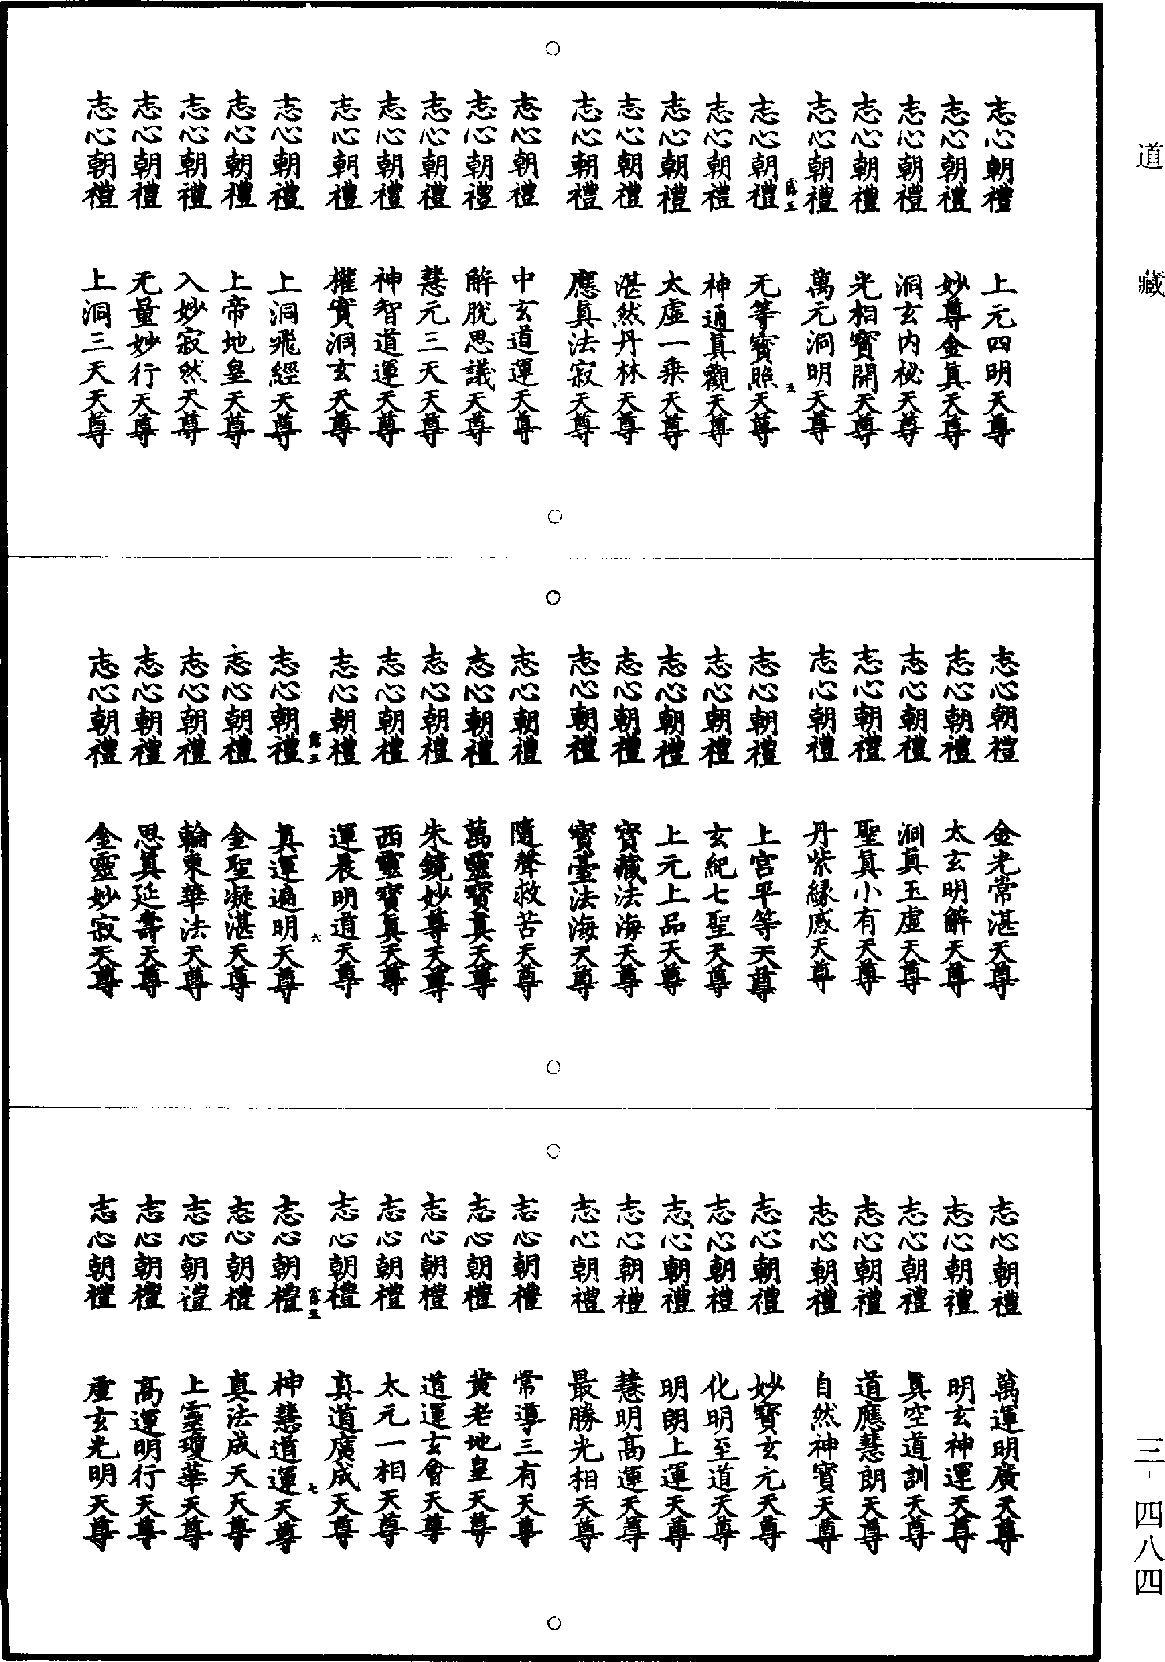 道藏
志心朝禮　上元四明天尊
志心朝禮　妙尊金真天尊
志心朝禮　洞玄內祕天尊
志心朝禮　光相寶開天尊
志心朝禮　萬元洞明天尊
五
志心朝禮　无等寶照天尊
志心朝禮　神通真觀天尊
志心朝禮　太虛一乘天尊
志心朝禮　湛然丹林天尊
志心朝禮　應真法寂天尊
志心朝禮　中玄道運天尊
志心朝禮　解脫思議天尊
志心朝禮　慧元三天天尊
志心朝禮　神智道運天尊
志心朝禮　權實洞玄天尊
志心朝禮　上洞飛經天尊
志心朝禮　上帝地皇天尊
志心朝禮　入妙寂然天尊
志心朝禮　无量妙行天尊
志心朝禮　上洞三天天尊
志心朝禮　金光常湛天尊
志心朝禮　太玄明解天尊
志心朝禮　洞真玉虛天尊
志心朝禮　聖真小有天尊
志心朝禮　丹紫緣感天尊
志心朝禮　上宮平等天尊
志心朝禮　玄紀七聖天尊
志心朝禮　上元上品天尊
志心朝禮　寶藏法海天尊
志心朝禮　寶臺法海天尊
志心朝禮　隨聲救苦天尊
志心朝禮　萬靈寶真天尊
志心朝禮　朱鏡妙尊天尊
志心朝禮　西靈寶真天尊
志心朝禮　運晨明道天尊
六
志心朝禮　真運遍明天尊
志心朝禮　金聖凝湛天尊
志心朝禮　輪東華法天尊
志心朝禮　思真延壽天尊
志心朝禮　金靈妙寂天尊
志心朝禮　萬運明廣天尊
志心朝禮　明玄神運天尊
志心朝禮　真空道訓天尊
志心朝禮　道應慧朗天尊
志心朝禮　自然神寶天尊
志心朝禮　妙寶玄元天尊
志心朝禮　化明至道天尊
志心朝禮　明朗上運天尊
志心朝禮　慧明高運天尊
志心朝禮　最勝光相天尊
志心朝禮　常導三有天尊
志心朝禮　黃老地皇天尊
志心朝禮　道運玄會天尊
志心朝禮　太元一相天尊
志心朝禮　真道廣成天尊
七
志心朝禮　神慧道運天尊
志心朝禮　真法成天天尊
志心朝禮　上靈瓊華天尊
志心朝禮　高運明行天尊
志心朝禮　虛玄光明天尊
三-四八四